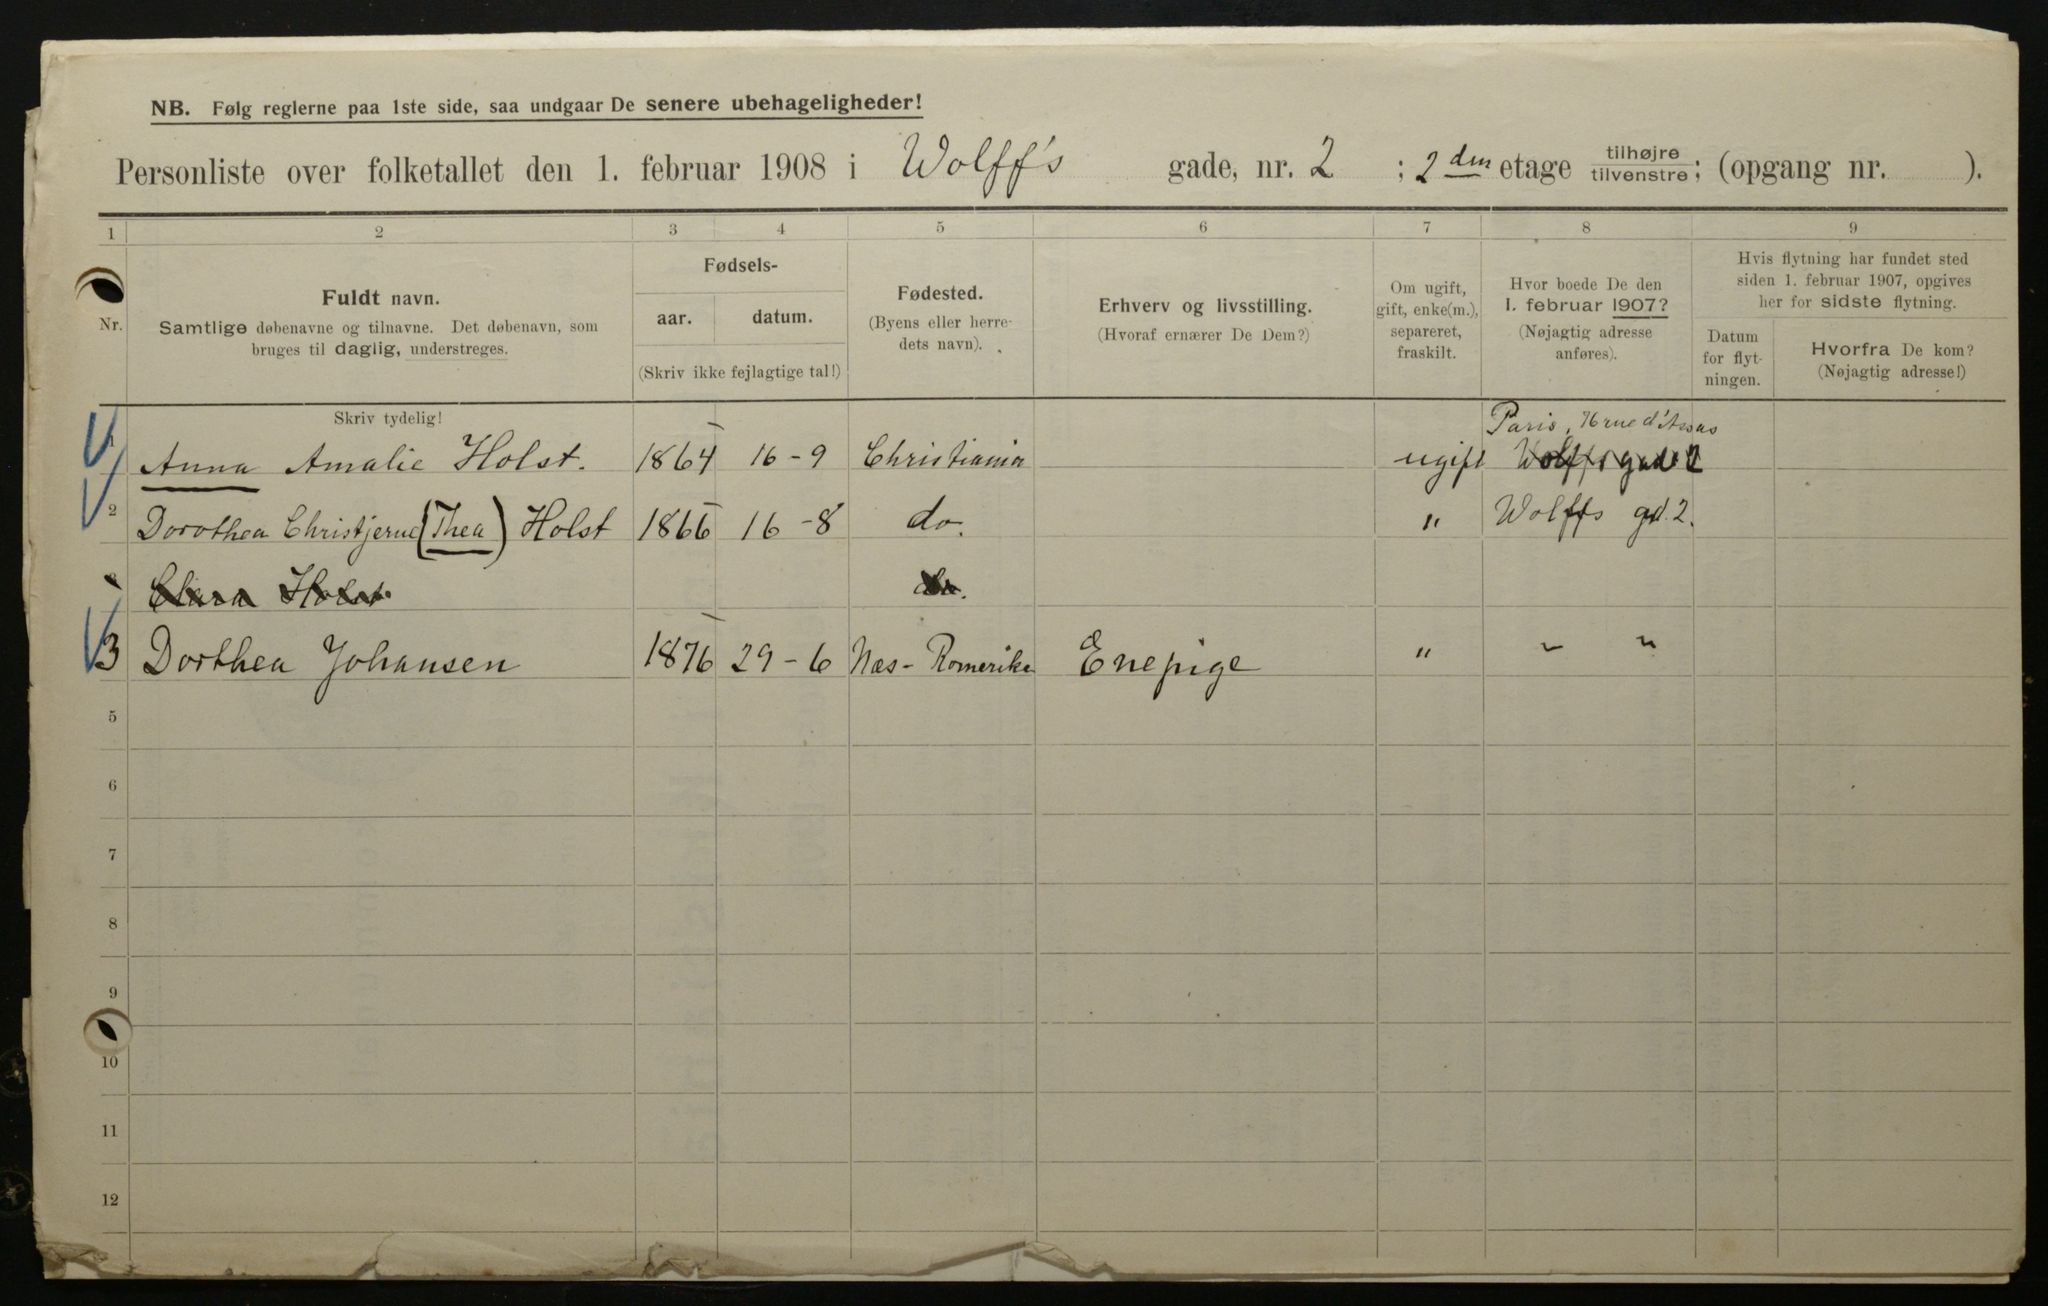 NB. Følg reglerne paa 1ste side, saa undgaar De senere ubehageligheder!
Personliste over folketallet den 1. februar 1908 i Wolff's gade, nr. 2 ; 2den etage tilhøjre tilvenstre; (opgang nr. ).
1 2 3 4 5 6 7 8 9
Nr.
Fuldt navn.
Samtlige døbenavne og tilnavne. Det døbenavn, som
bruges til daglig, understreges.
Fødsels-
aar. datum.
(Skriv ikke fejlagtige tal!)
Fødested.
(Byens eller herre-
dets navn).
Erhverv og livsstilling.
(Hvoraf ernærer De Dem?)
Om ugift,
gift, enke(m.),
separeret,
fraskilt.
Hvor boede De den
1. februar 1907?
(Nøjagtig adresse
anføres).
Hvis flytning har fundet sted
siden 1. februar 1907, opgives
her for sidste flytning.
Datum
for flyt-
ningen.
Hvorfra De kom?
(Nøjagtig adresse!)
Skriv tydelig!
Paris, 76 rue d'Assas
1 Anna Amalie Holst. 1864 16-9 Christiania ugift Wolffs gade 2
2 Dorothea Christjerne (Thea) Holst 1866 16-8 do. " Wolffs gd. 2.
Clara Holst do.
3 Dorthea Johansen 1876 29-6 Næs-Romerike Enepige " " "
5
6
7
8
9
10
11
12